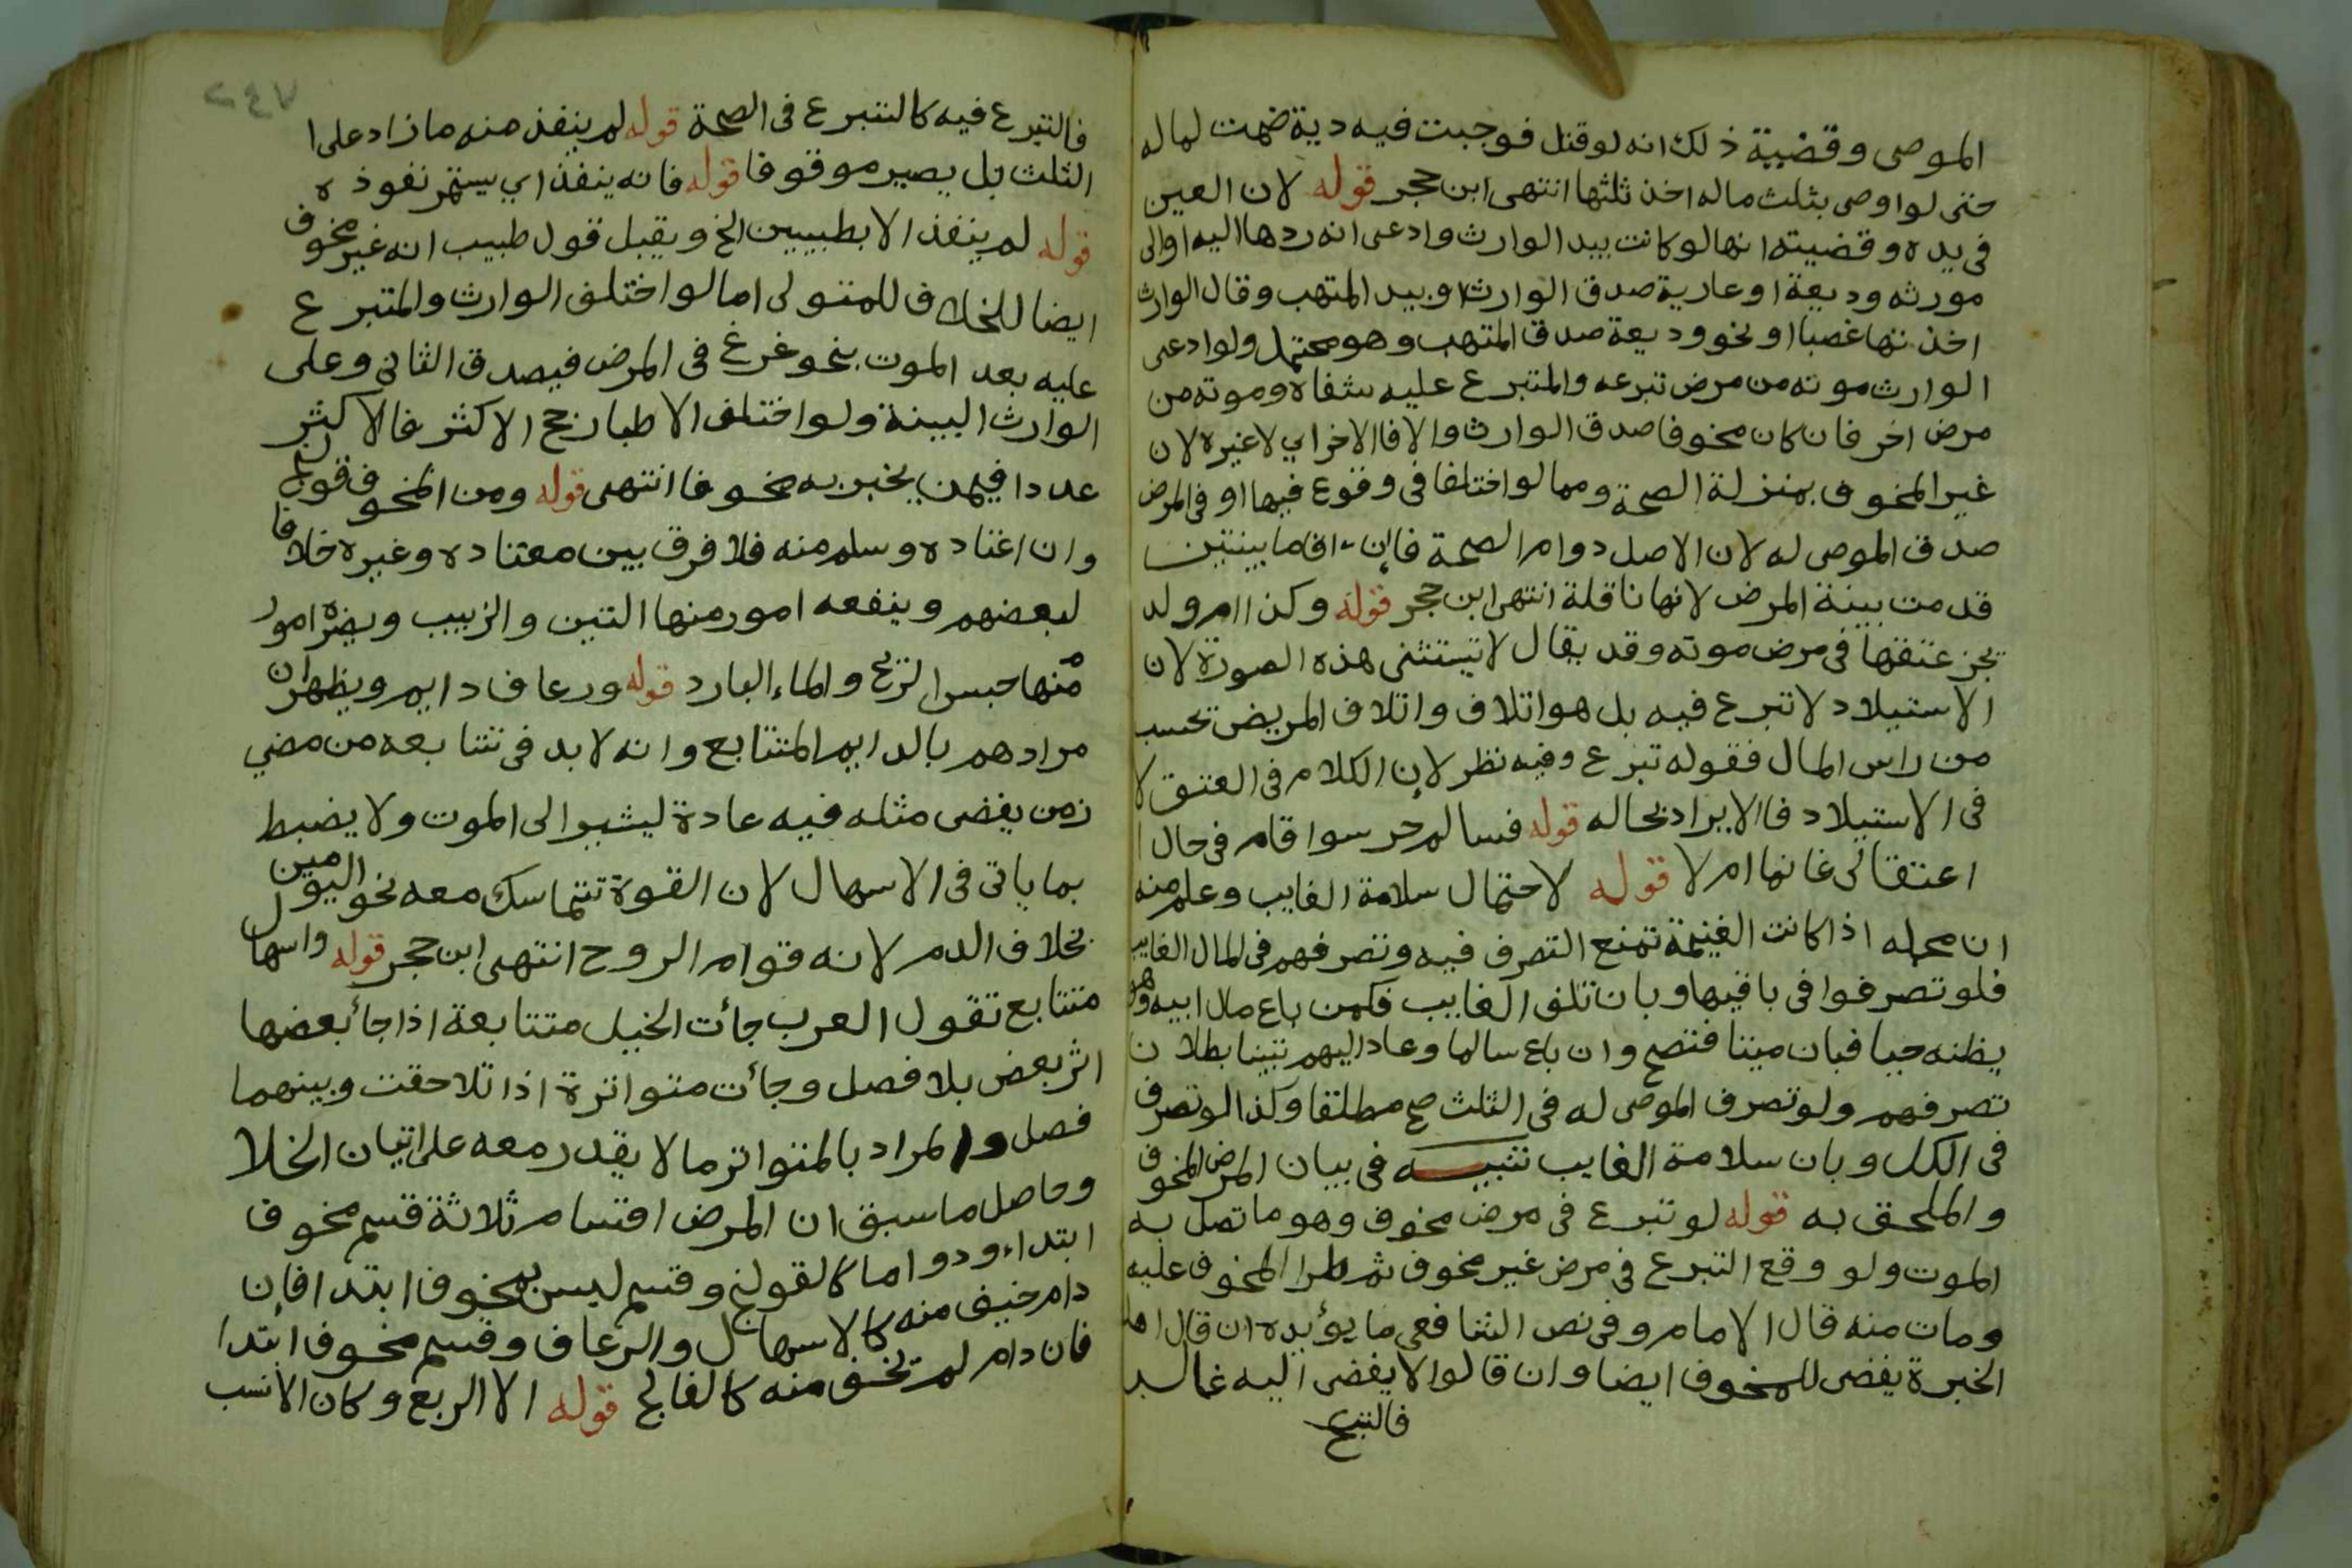 الموصى وقضية ذلك انه لو قتل فوجبت فيه دية ضمت لماله
حتى لو اوصى بثلث ماله اخذ ثلثها انتهى ابن حجر قوله لان العين
فى يده وقضيته انها لو كانت بيد الوارث وادعى انه ردها اليه او الى
مورثه وديعة او عارية صدق الوارث او بيد المتهب وقال الوارث
اخذتها غصبا او نحو وديعة صدق المتهب وهو محتمل ولو ادعى
الوارث موته من مرض تبرعه والمتبرع عليه شفاه وموته من
مرض اخر فان كان مخوفا صدق الوارث والا فالاخر اي لا غيره لان
غير المخوف بمنزلة الصحة ومما لو اختلفا فى وقوع فيها او فى المرض
صدق الموصى له لان الاصل دوام الصحة فان اقاما بينتين
قدمت بينة المرض لانها ناقلة انتهى ابن حجر قوله وكذا ام ولد
نجز عتقها فى مرض موته وقد يقال لا تستثنى هذه الصورة لان
الاستيلاد لا تبرع فيه بل هو اتلاف واتلاف المريض تحسب
من راس المال فقوله تبرع وفيه نظر لان الكلام فى العتق لا
فى الاستيلاد فالايراد بحاله قوله فسالم حر سوا قام فى حال ا
اعتقا لى غانما ام لا قوله لاحتمال سلامة الغايب وعلم منه
ان محله اذا كانت الغيبة تمنع التصرف فيه وتصرفهم فى المال الغايب
فلو تصرفوا فى باقيها وبان تلف الغايب فكمن باع مال ابيه وهو
يظنه حيا فبان ميتا فتصح وان باع سالما وعاد اليهم تبينا بطلان
تصرفهم ولو تصرف الموصى له فى الثلث صح مطلقا وكذا لو تصرف
فى الكل وبان سلامة الغايب تنبيه فى بيان المرض المخوف
والملحق به قوله لو تبرع فى مرض مخوف وهو ما تصل به
الموت ولو وقع التبرع فى مرض غير مخوف ثم طرا المخوف عليه
ومات منه قال الامام وفى نص الشافعى ما يؤيده ان قال اهل
الخبرة يفضى للمخوف ايضا وان قالوا لا يفضى اليه غالبـا
فالتبرع
٢٤٧
فالتبرع فيه كالتبرع فى الصحة قوله لم ينفذ منه ما زاد على ا
الثلث بل يصير موقوفا قوله فانه ينفذ اي يستمر نفوذه
قوله لم ينفذ الا بطبيبين الخ ويقبل قول طبيب انه غير مخوف
ايضا للخلاف للمتولى اما لو اختلف الوارث والمتبرع
عليه بعد الموت بنحو غرغ فى المرض فيصدق الثاني وعلى
الوارث البينة ولو اختلف الاطبا رجح الاكثر فالاكثر
عددا فيمن يخبر به مخوفا انتهى قوله ومن المخوف قولنج
وان اعتاده وسلم منه فلا فرق بين معتاده وغيره خلافا
لبعضهم وينفعه امور منها التين والزبيب ويضره امور
منها حبس الريح والماء البارد قوله ورعاف دايم ويظهر ان
مرادهم بالدايم المتتابع وانه لا بد فى تتابعه من مضي
زمن يفضى مثله فيه عادة ليشير الى الموت ولا يضبط
بما ياتى فى الاسهال لان القوة تتماسك معه نحو اليومين
بخلاف الدم لانه قوام الروح انتهى ابن حجر قوله واسهال
متتابع تقول العرب جأت الخيل متتابعة اذا جأ بعضها
اثر بعض بلا فصل وجأت متواترة اذا تلاحقت وبينهما
فصل والمراد بالمتواتر ما لا يقدر معه على اتيان الخلا
وحاصل ما سبق ان المرض اقسام ثلاثة قسم مخوف
ابتداء ودواما كالقولنج وقسم ليس بمخوف ابتدا فان
دام خيف منه كالاسهال والرعاف وقسم مخوف ابتدا
فان دام لم تخف منه كالفالج قوله الا الربع وكان الانسب